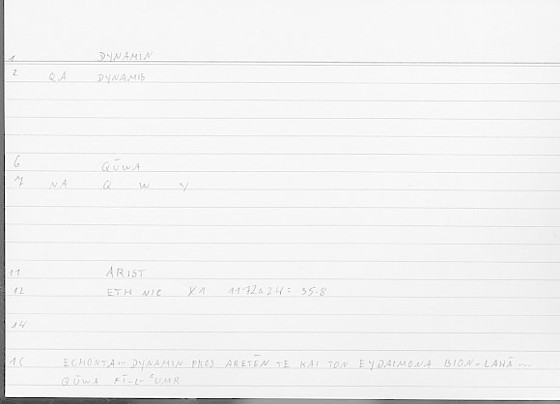 1 DYNAMIN
2 QA DYNAMIS
6 QŪWA
7 NA Q W Y
11 ARIST
12 ETH NIC X1 1172a24: 35.8
14
16 ECHONTA– DYNAMIN PROS ARETĒN TE KAI TON EYDAIMONA BION – LAHĀ –
QŪWA FĪ-L-ʿUMR